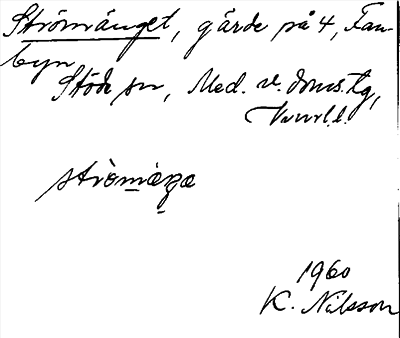 Strömänget, gärde på 4, Fan-
byn
Stöde sn, Med. v. doms.tg,
Vnrl.l.
strö̀mæŋa
1960
K. Nilsson